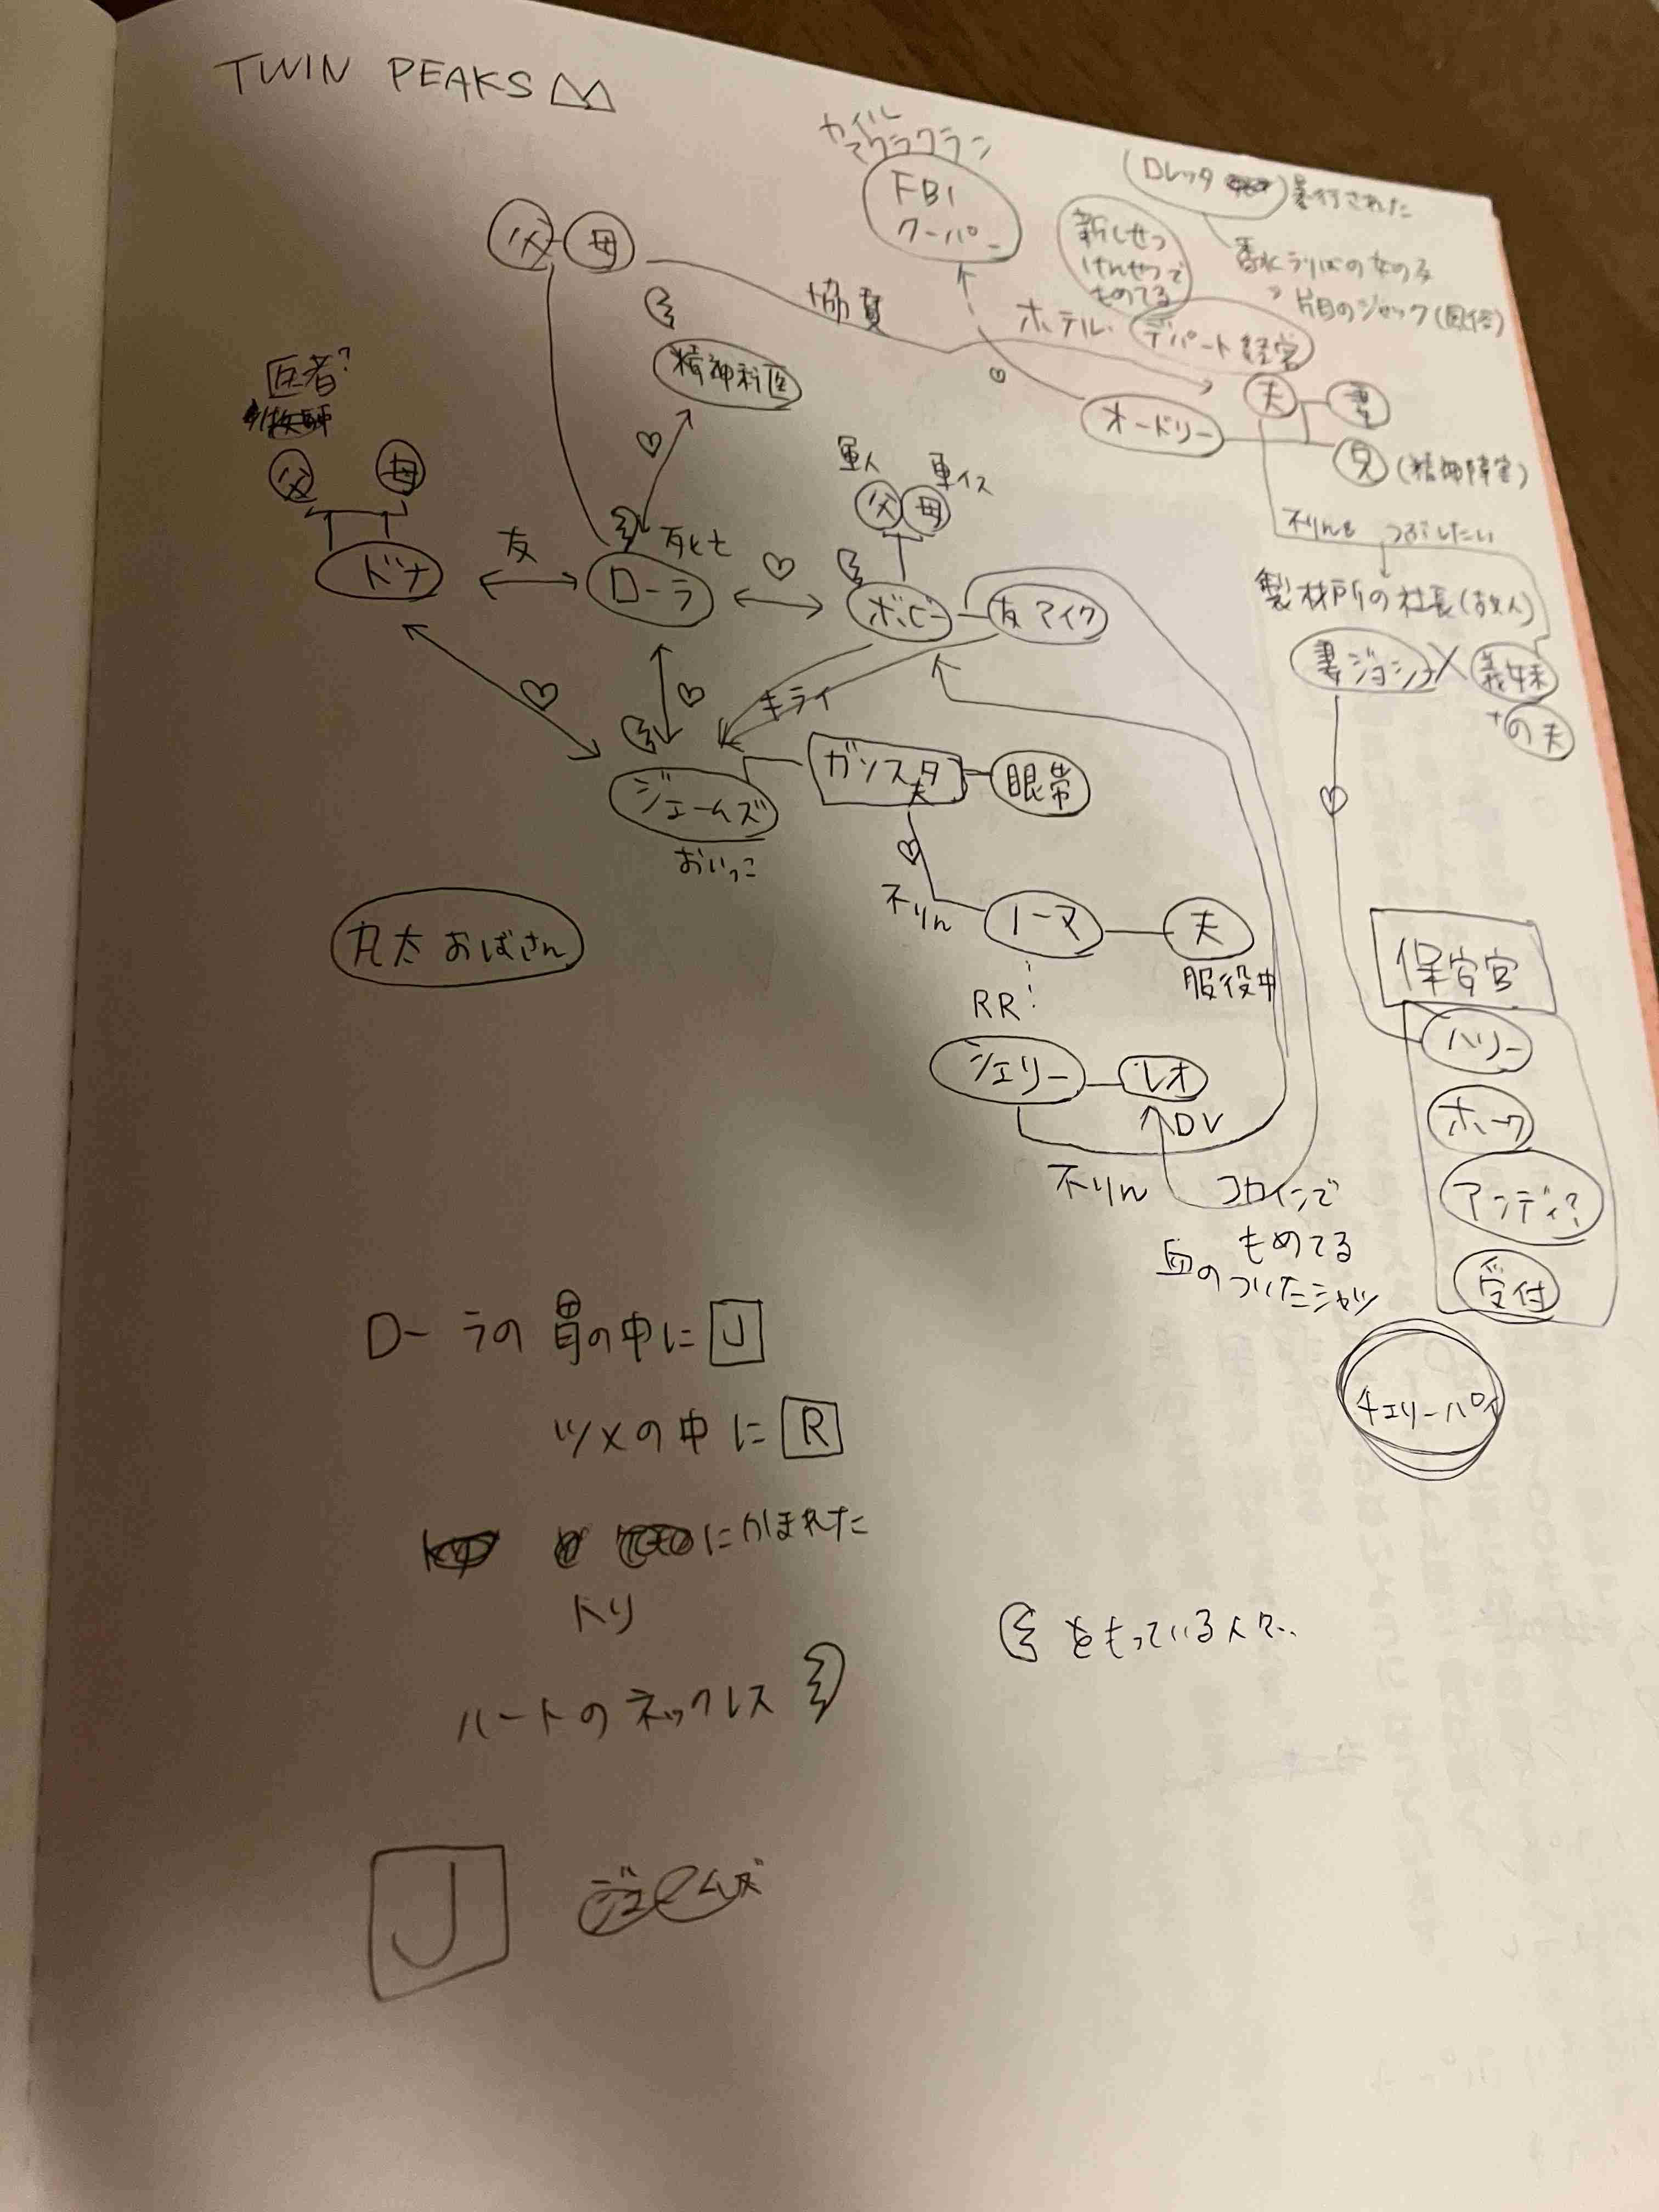 TWIN PEAKS
カイル
マクラクラン
FBI
クーパー
ロレッタ
暴行された
新しせつ
けんせつで
もめてる
香水うりばの女の子
片目のジャック(風俗)
父 母
協賛
ホテル・デパート経営
精神科医
医者?
父 母
オードリー
夫 妻
兄(精神障害)
軍人 車イス
父 母
不りん つぶしたい
友
死亡
ドナ
ローラ
ボビー
友 マイク
製材所の社長(故人)
妻 ジョシー 義妹
+の夫
キライ
ジェームズ
おいっこ
ガソスタ
夫
眼帯
不りん
ノーマ
夫
服役中
丸太おばさん
RR
シェリー
レオ
DV
不りん
コカインで
もめてる
血のついたシャツ
保安官
ハリー
ホーク
アンディ?
受付
チェリーパイ
ローラの胃の中に J
ツメの中に R
にかまれた
トリ
をもっている人々..
ハートのネックレス
J ジェームズ